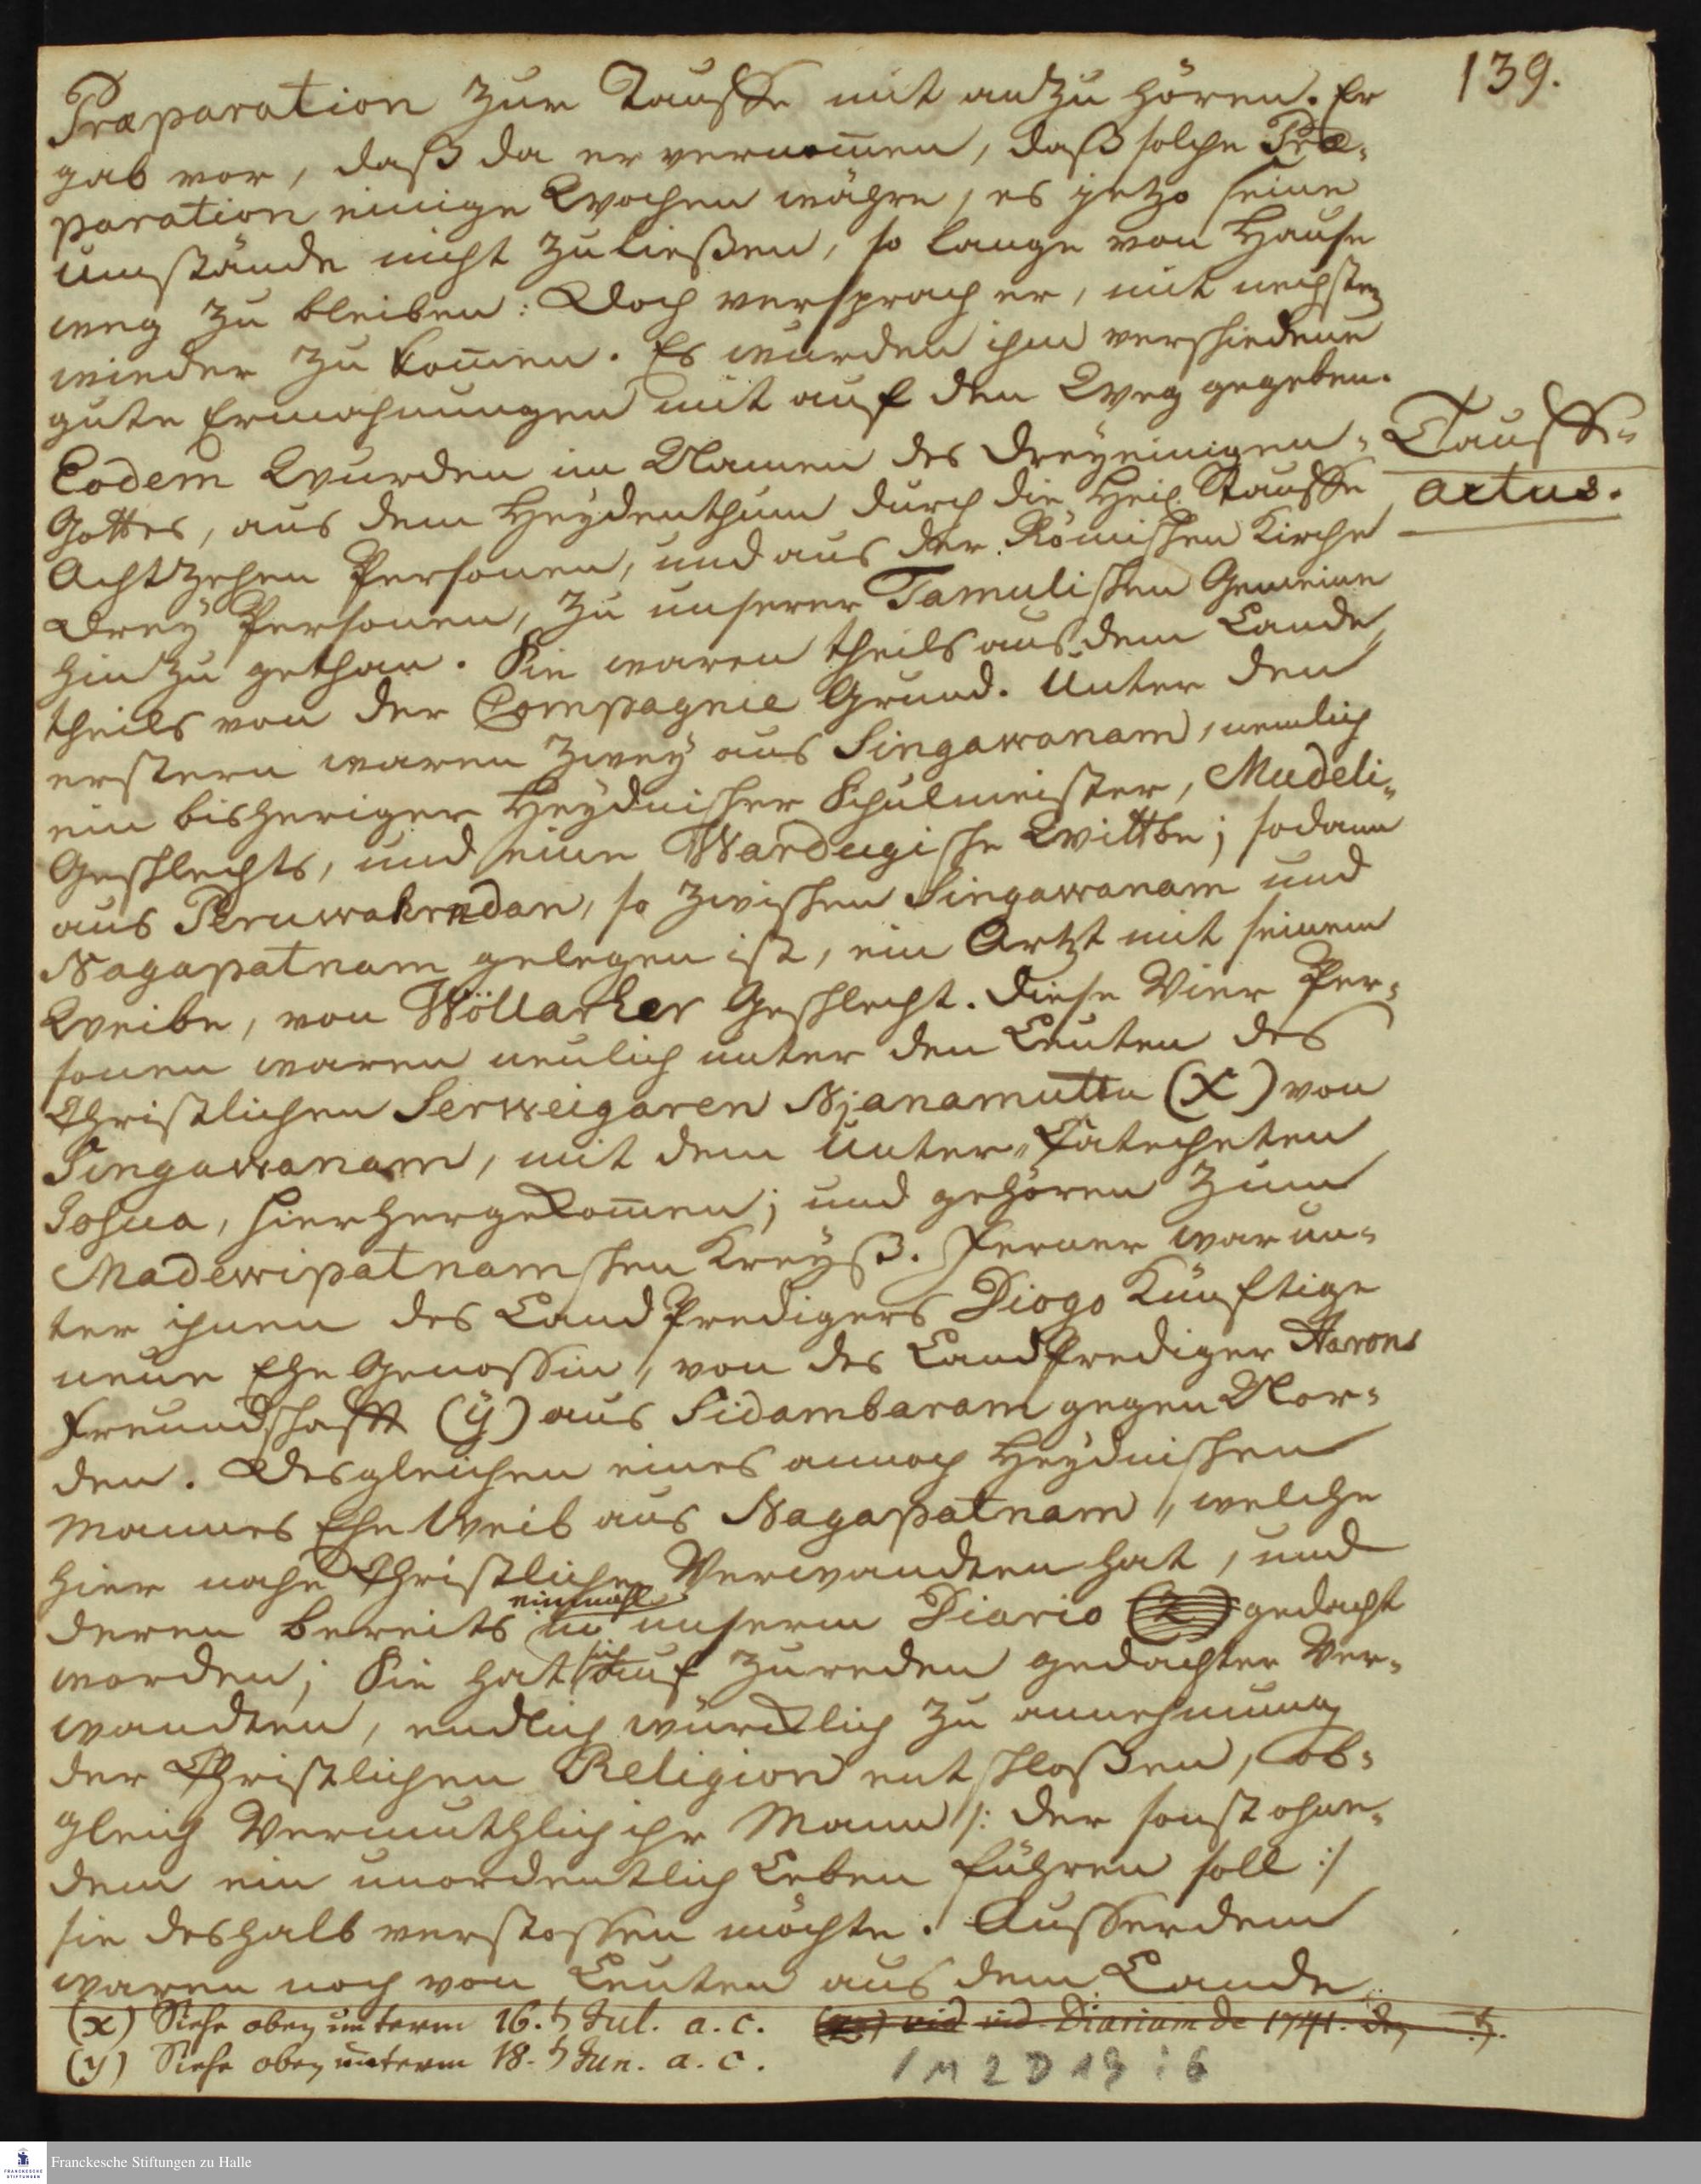 139.
Præparation zur Tauffe mit anzuhören. Er
gab vor, daß da er vernom̅en, daß solche Præ-
paration einige Wochen währe, es jetzo seine
umstände nicht zuließen, so lange von Hause
weg zu bleiben: Doch versprach er, mit nechsten
wieder zu kom̅en. Es wurden ihm verschiedene
gute Ermahnungen mit auf den Weg gegeben.
Eodem Wurden im Namen des dreyeinigen-
Gottes, aus dem Heydenthum durch die Heil. Tauffe
Achtzehen Personen, und aus der Römischen Kirche
drey Personen, zu unserer Tamulischen Gemeine
hinzu gethan. Sie waren theils aus dem Lande,
theils von der Compagnie Grund. Unter den
erstern waren zwey aus Singawanam, nemlich
ein bisheriger Heydnischer Schulmeister, Mudeli-
Geschlechts, und eine Wardugische Wittbe; sodann
aus Peruwakrndan, so zwischen Singawanam und
Nagapatnam gelegen ist, ein Artzt mit seinem
Weibe, von Wöllarher Geschlecht. Diese Vier Per-
sonen waren neulich unter den Leuten des
Christlichen Serweigaren Njanamuttu (x) von
Singawanam, mit dem Unter-Catecheten
Josua, hierhergekom̅en; und gehören zum
Madewipatnamschen Kreyß. Ferner war un-
ter ihnen des Land Predigers Diogo Künftige
neue Ehe Genossin, von des Land Prediger Aarons
Freundschafft (y) aus Sidambaram gegen Nor-
den. Desgleichen eines annoch Heydnischen
Mannes Ehe Weib aus Nagapatnam, welche
hier nahe Christliche Verwandten hat, und
deren bereits einmahl in unserm Diario (z) gedacht
worden; Sie hat sich auf zureden gedachter Ver-
wandten, endlich würcklich zu annehmung
der Christlichen Religion entschloßen, ob-
gleich Vermuthlich ihr Mann /: der sonst ohne-
dem ein unordentlich Leben führen soll :/
sie deshalb verstossen möchte. Ausserdem
waren noch von Leuten aus dem Lande
Tauff-
actus.
(x) Siehe oben unterm 16. ♄ Jul. a. c. (z) vid vid Diarium de 1741. den ♄.
(y) Siehe oben unterm 18. ♄ Jun. a. c.
1 M 2 D 19 : 6
FRANCKESCHE
STIFTUNGEN
Franckesche Stiftungen zu Halle